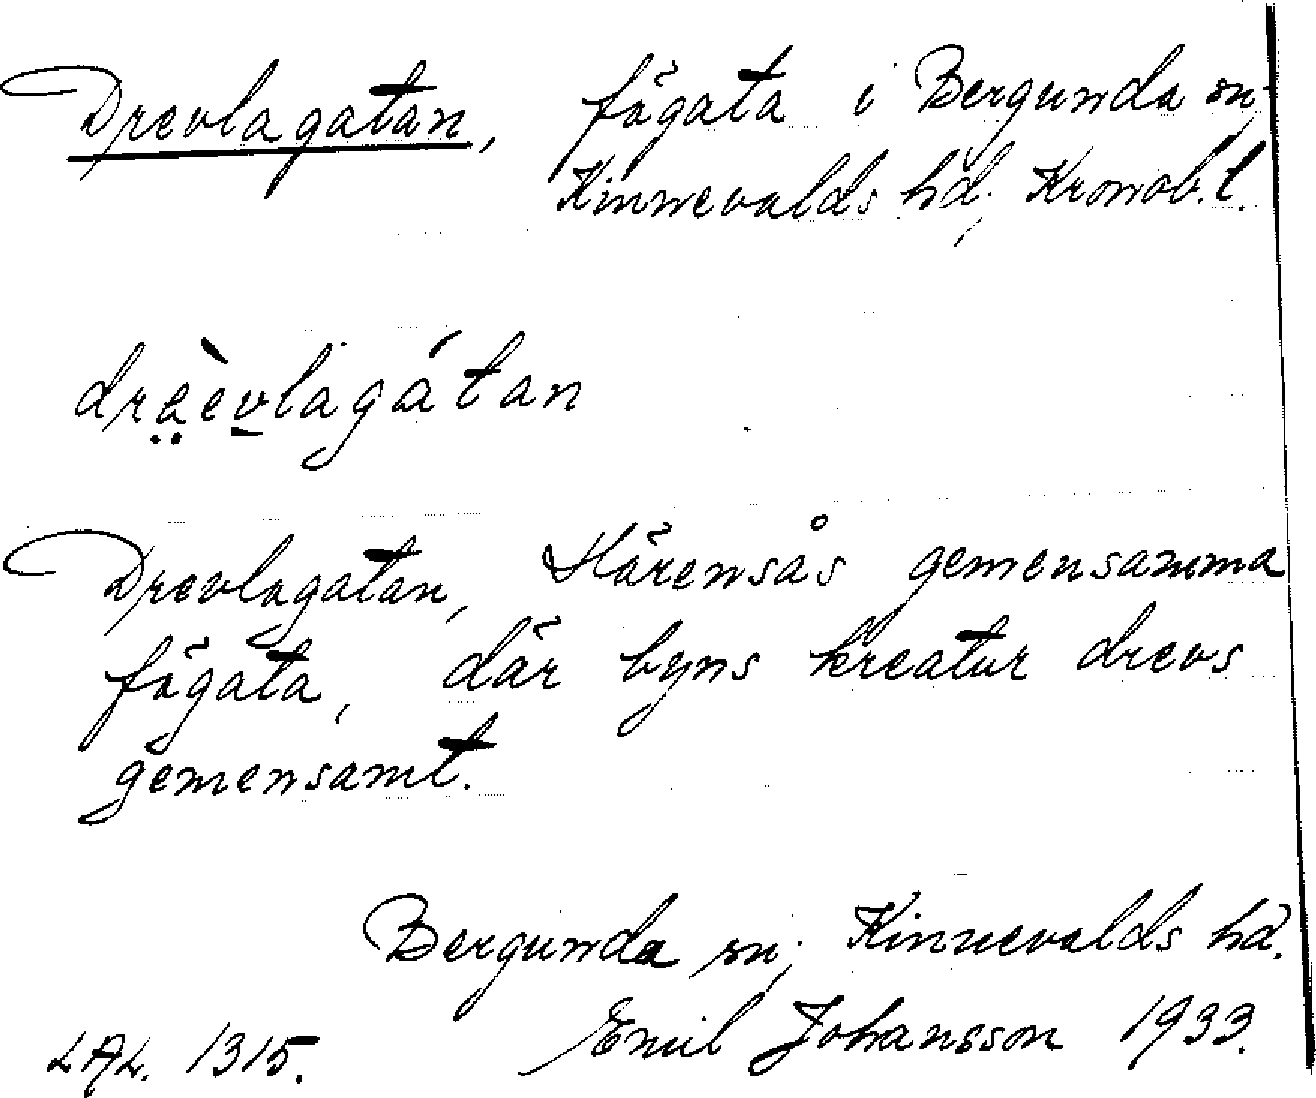 Drevlagatan, fägata i Bergunda sn,
Kinnevalds hd, Kronob. l.
dra̤èv̠lagátan
Drevlagatan, Härensås gemensamma
fägata, där byns kreatur drevs
gemensamt.
Bergunda sn, Kinnevalds hd.
LAL. 1315. Emil Johansson 1933.